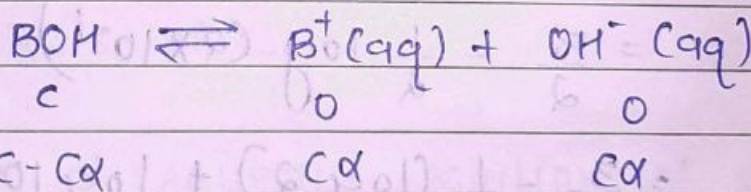 BOH ⇌ B⁺(aq) + OH⁻ (aq)
C O O
C-Cα Cα Cα.